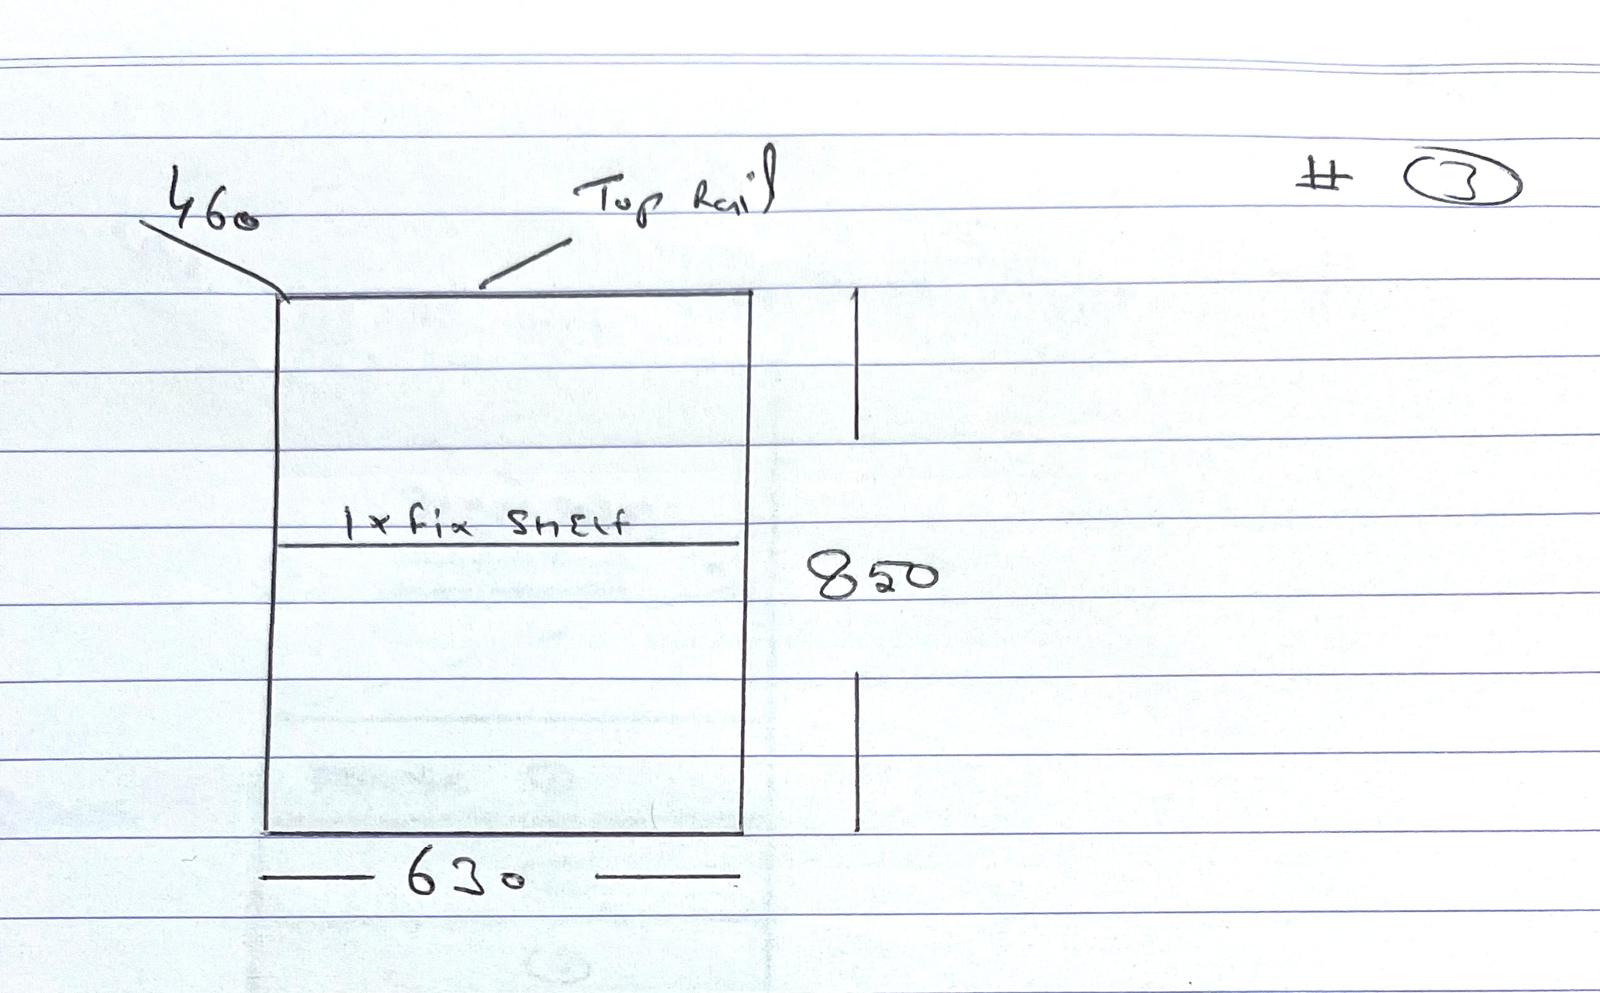 # 3
460
Top Rail
1 x fix SHELF
850
630